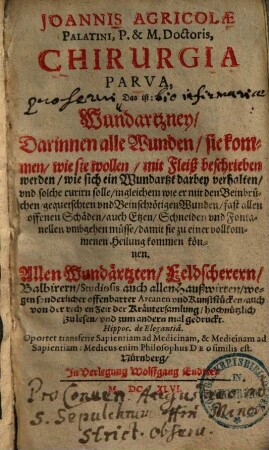 JOANNIS AGRICOLÆ
PALATINI, P. & M, Doctoris,
CHIRURGIA
PARVA,
Das ist:
Wundartzney/
Darinnen alle Wunden/ sie kom-
men/ wie sie wollen/ mit Fleiß beschrieben
werden/ wie sich ein Wundartzt darbey verhalten/
vnd solche curirn solle/ ingleichem wie er mit den Beinbrü-
chen/ gequetschten vnd Beinschrötigen Wunden/ fast allen
offenen Schäden/ auch Etzen/ Schneiden vnd Fonta-
nellen vmbgehen müsse/ damit sie zu einer vollkom-
menen Heilung kommen kön-
nen.
Allen Wundärtzten/ Feldscherern/
Balbirern/ Studiosis auch allen Haußwirten/ we-
gen sonderlicher offenbarter Arcanen vnd Kunststücken auch
von der rechten Zeit der Kräutersamlung/ hochnützlich
zu lesen/ vnd zum andern mal gedruckt.
Hippoc. de Elegantiâ.
Oportet transferre Sapientiam ad Medicinam, & Medicinam ad
Sapientiam: Medicus enim Philosophus DEO similis est.
Nürnberg/
In Verlegung Wolffgang Endters
M. DC. XLVI.
Pro Conven. August
S. Sepulchrum
Strict. observ.